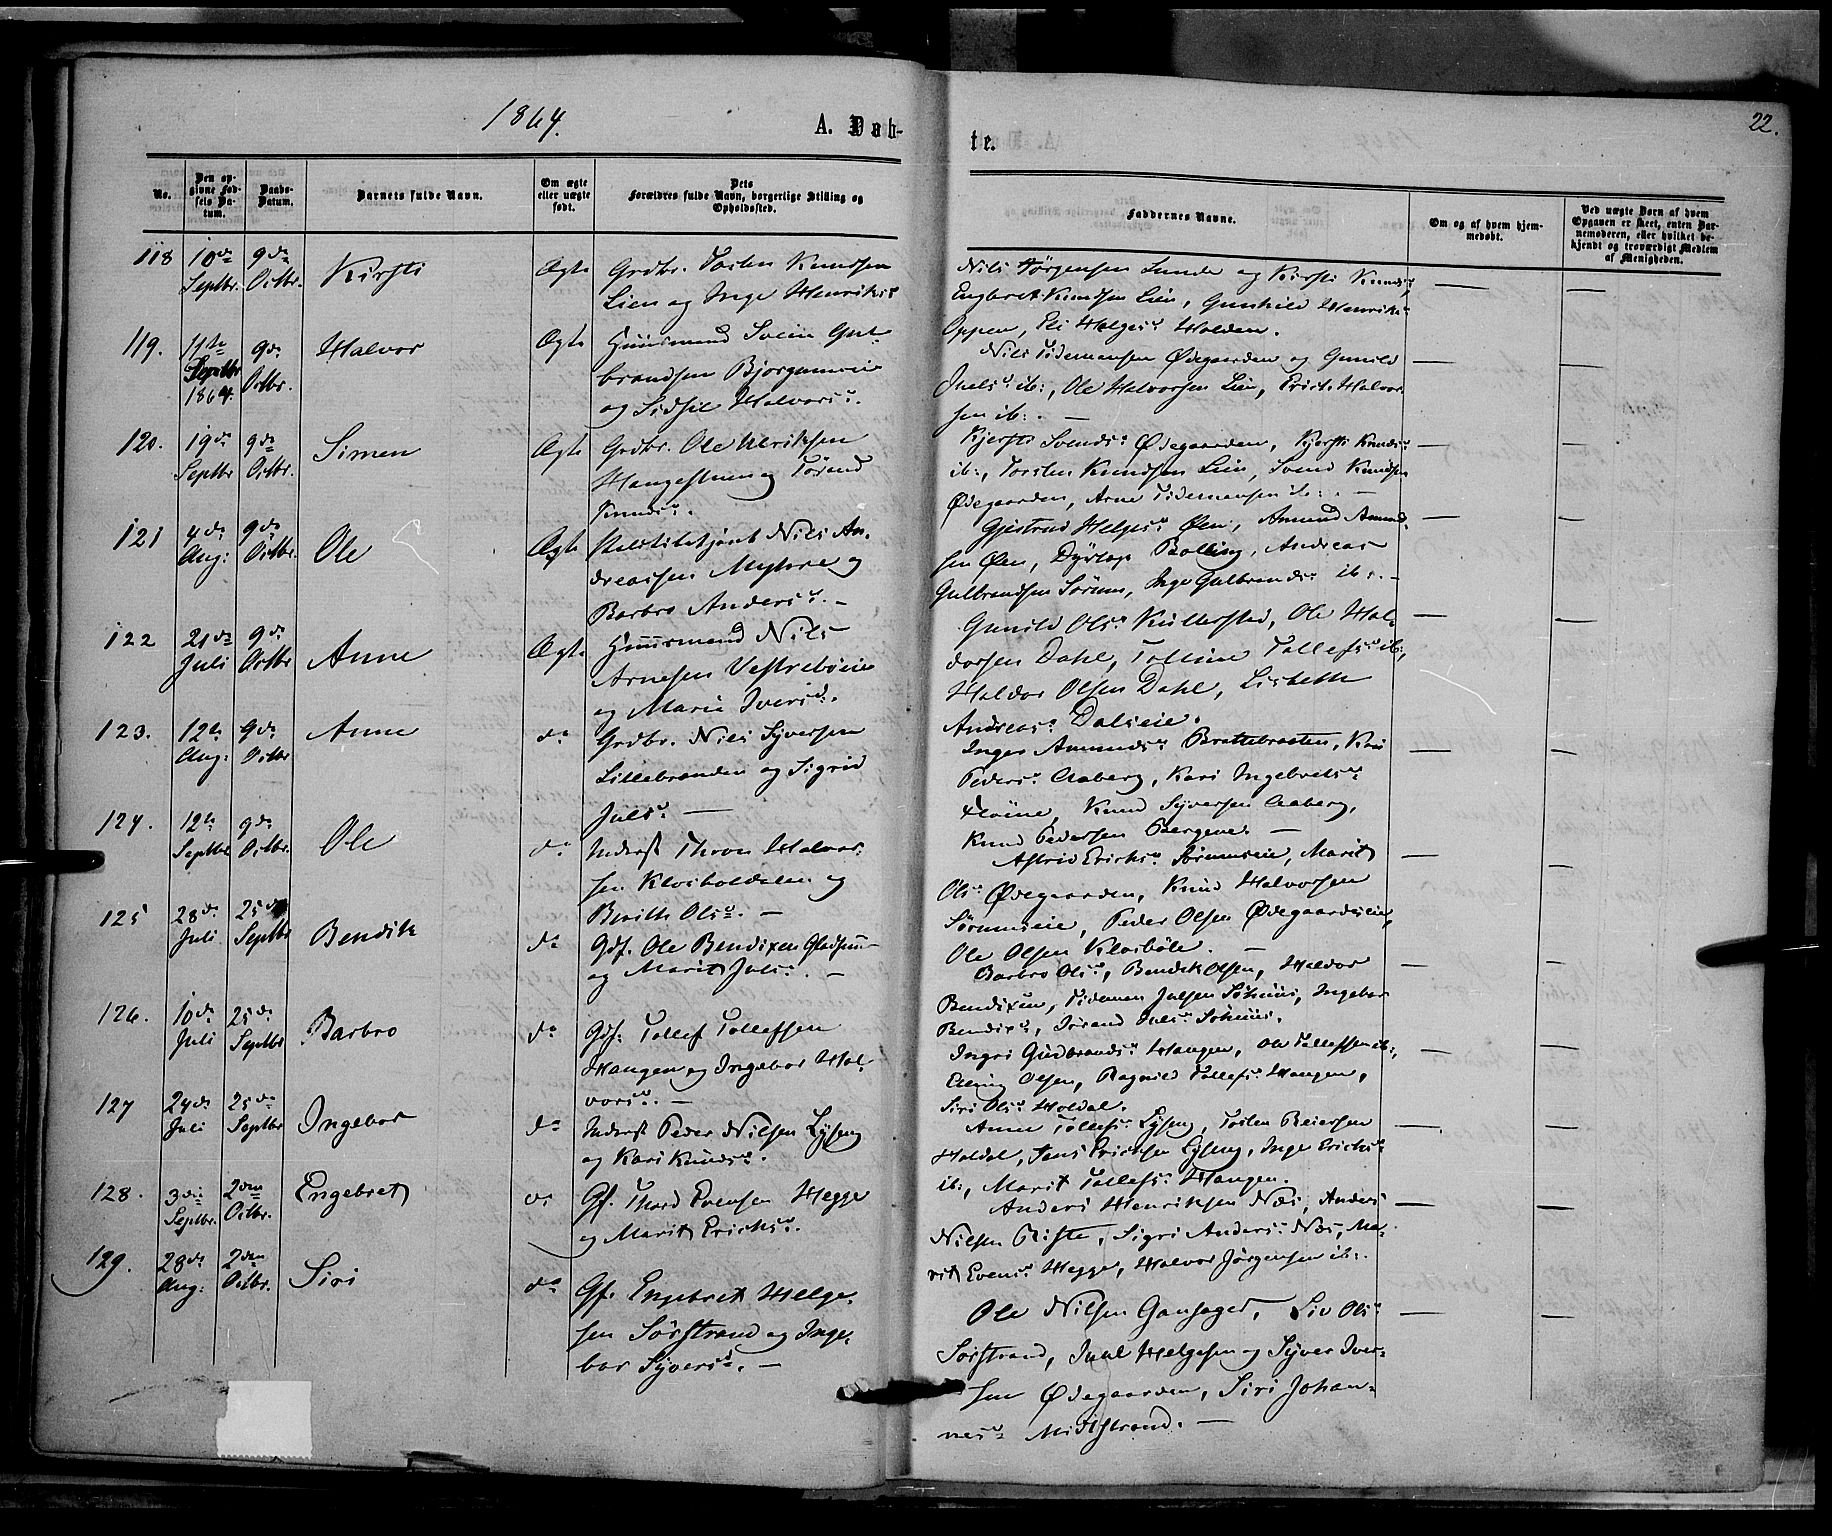 1864.
A. Døb-
te.
22.
No.
Den op-
givne Fød-
sels Da-
tum.
Daabs-
Datum.
Barnets fulde Navn.
Om ægte
eller uægte
født.
Dets
Forældres fulde Navn, borgerlige Stilling og
Opholdssted.
Faddernes Navne.
Om og af hvem hjem-
medøbt.
Ved uægte Børn af hvem
Opgaven er skeet, enten Bar-
nemoderen, eller hvilket be-
kjendt og troværdigt Medlem
af Menigheden.
118 10de Septbr. 9de Octbr. Kirsti Ægte Grdbr. Tosten Knudsen
Lien og Inge Henriksd
Nils Jørgensen Lunde og Kirsti Knudsd,
Engbret Knudsen Lien, Gunhild Henriksd
Oppen, Eli Helgesd Holden.
119. 11te Septbr 1864. 9de Octbr. Halvor Ægte Huusmand Svein Gul-
brandsen Bjørgumeie
og Sidsil Halvorsd.
Nils Tidemansen Ødegaarden og Gunild
Juelsd ib:, Ole Halvorsen Lien, Erick Halvor-
sen ib:. —
120. 19de Septbr 9de Octbr. Simen Ægte Grdbr. Ole Ulriksen
Haugestuen og Tørand
Knudsd.
Kjersti Svendsd Ødegaarden, Kjersti Knudsd
ib:, Torsten Knudsen Lien, Svend Knudsen
Ødegaarden, Arne Tidemansen ib:. —
121 4de Aug: 9de Octbr. Ole Ægte Nils An-
dreassen Myhre og
Barbro Andersd. —
Gjertrud Helgesd Øen, Amund Amund-
sen Øen, Bolling, Andreas
Gulbrandsen Sørum, Inge Gulbrandsd ib:. —
122 21de Juli 9de Octbr Anne Ægte Huusmand Nils
Arnesen Vestrebøeie
og Marie Iversd.
Gunild Olsd Kullersted, Ole Hal-
dorsen Dahl, Tolline Tollefsd ib:,
Haldor Olsen Dahl, Lisbeth
Andreasd Dalseie.
123. 12te Aug: 9de Octbr Anne do Grdbr. Nils Syversen
Lillebraaden og Sigrid
Julsd —
Inger Amundsd Brattebraaten, Kari
Pedersd Aaberg, Kari Ingebretsd
Knud Syversen Aaberg,
Knud Pedersen Bergene. —
124. 12te Septbr 9de Octbr. Ole do Inderst Thron Halvor-
sen Klosbøldalen og
Berith Olsd. —
Astrid Ericksd Sørumseie, Marit
Olsd Ødegaarden, Knud Halvorsen
Sørumseie, Peder Olsen Ødegaardseie,
Ole Olsen Klosbøle. —
125 28de Juli 25de Septbr Bendik do Gdf. Ole Bendixen
og Marit Julsd. —
Barbro Olsd, Bendik Olsen, Haldor
Bendixen, Tideman Julsen, Ingebor
Bendixd, Jørand Julsd
126. 10de Juli 25de Septbr Barbro do Gdf: Tollef Tollefsen
Haugen og Ingebor Hal-
vorsd. —
Ingri Gudbrandsd Haugen, Ole Tollefsen ib:,
Elling Olsen, Ragnild Tollefsd Haugen,
Siri Olsd Holdal.
127 24de Juli 25de Septbr Ingebor do Inderst Peder Nilsen Lyseng
og Kari Knudsd.
Anne Tollefsd Lyseng, Tosten Reiersen
Holdal, Jens Ericksen Lyseng, Inge Ericksd
ib:, Marit Tollefsd Haugen.
128. 3die Septbr. 2den Octbr. Engebret do Gf. Thord Evensen Hegge
og Marit Ericksd.
Anders Henriksen Næs, Anders
Nilsen Riste, Sigri Andersd Næs, Ma-
rit Evensd Hegge, Halvor Jörgensen ib:.
129. 28de Aug: 2den Octbr. Siri do Gf. Engebret Helge-
sen Sørstrand og Inge-
bor Syversd. —
Ole Nilsen Gansager, Liv Olsd
Sørstrand, Juul Helgesen og Syver Iver-
sen Ødegaarden, Siri Johan-
nesd Midtstrand. —